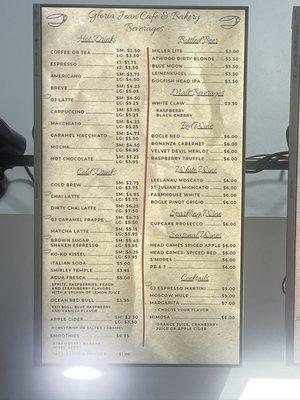 Gloria Jean Cafe & Bakery
Beverages
Hot Drinks
COFFEE OR TEA SM: $2.50
LG: $3.50
ESPRESSO x1: $1.75
x2: $3.50
AMERICANO SM: $3.75
LG: $4.50
BREVE SM: $4.25
LG: $5.05
G3 LATTE SM:
LG: $5.50
CAPPUCCINO
MACCHIATO
CARAMEL MACCHIATO
MOCHA SM: $4.50
HOT CHOCOLATE SM: $3.25
LG: $3.95
Cold Drinks
COLD BREW SM: $2.75
LG: $3.75
CHAI LATTE
DIRTY CHAI LATTE
G3 CARAMEL FRAPPE SM: $4.75
MATCHA LATTE SM: $5.15
BROWN SUGAR SM: $5.45
SHAKEN ESPRESSO
KO-KO KISSEL SM: $5.25
ITALIAN SODA $5.00
SHIRLEY TEMPLE $3.95
AGUA FRESCA $3.50
SPRITE, RASPBERRIES, PEACH
AND STRAWBERRY FLAVORS
WITH A SPLASH OF LEMON JUICE
OCEAN RED BULL $5.50
RED BULL, BLUE RASPBERRY
AND VANILLA FLAVOR
APPLE CIDER SM: $2.50
LG: $3.50
HONEYCRISP OR SALTED CARAMEL
SMOOTHIES $6.95
STRAWBERRY BANANA
Bottled Beer
MILLER LITE $3.00
ATWOOD DIRTY BLONDE $3.50
BLUE MOON $3.50
LEINENKUGEL $3.50
DOGFISH HEAD IPA $3.50
Malt Beverages
WHITE CLAW $3.50
RASPBERRY
BLACK CHERRY
Red Wine
BOGLE RED $6.00
BONANZA CABERNET $6.00
VELVET DEVIL MERLOT $6.00
RASPBERRY TRUFFLE $6.00
White Wine
LEELANAU MOSCATO $6.00
ST JULIAN'S MICHCATO $6.00
FARMHOUSE WHITE $6.00
BOGLE PINOT GRIGIO $6.00
Sparkling Wine
CUPCAKE PROSECCO $6.00
Seasonal Wines
HEAD GAMES SPICED APPLE $6.00
HEAD GAMES- SPICED RED $6.00
S'MORES $6.00
PB & J $6.00
Cocktails
G3 ESPRESSO MARTINI $9.00
MOSCOW MULE $9.00
MARGARITA $7.00
CHOOSE YOUR FLAVOR
MIMOSA $6.00
ORANGE JUICE, CRANBERRY
JUICE OR APPLE CIDER